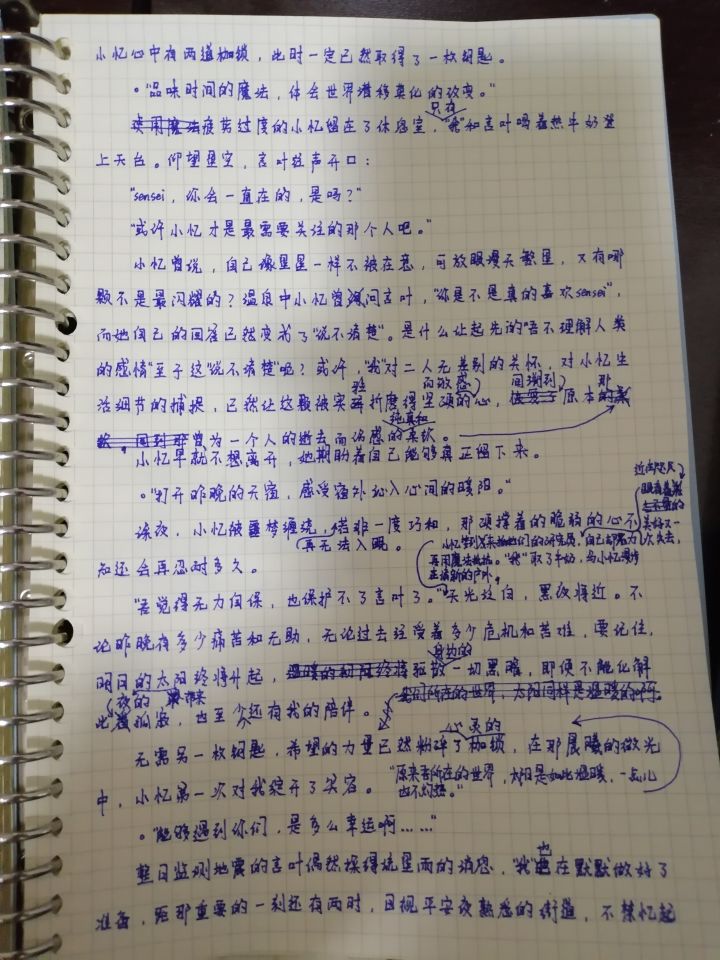 小忆心中有两道枷锁，此时一定已然取得了一枚钥匙。
。"品味时间的魔法，体会世界潜移莫化的改变。"
只有
疲劳过度的小忆留在了休息室，"我"和言叶喝着热牛奶登
上天台。仰望星空，言叶轻声开口：
"sensei，你会一直在的，是吗？"
"或许小忆才是最需要关注的那个人吧。"
小忆曾说，自己像星星一样不被在意，可放眼漫天繁星，又有哪
颗不是最闪耀的？温泉中小忆曾问言叶，"你是不是真的喜欢sensei"，
而她自己的回答已然变成了"说不清楚"。是什么让起先的"吾不理解人类
的感情"至于这"说不清楚"呢？或许，"我"对二人无差别的关怀，对小忆生
活细节的捕捉，已然让这颗被实验折磨得坚硬的心，原本的
而敏感 回溯到 那
曾为一个人的逝去而伤感的柔软。
纯真和
小忆早就不想离开，她期盼着自己能够真正留下来。
。"打开昨晚的天窗，感受窗外沁入心间的暖阳。"
近在咫尺
深夜，小忆被噩梦缠绕，若非一度巧和，那硬撑着的脆弱的心不
再无法入眠。
美好又一
次失去，
知还会再忍耐多久。
再用魔法 "我"取了牛奶，与小忆漫步
在清新的户外。
"吾觉得无力自保，也保护不了言叶了。"天光放白，黑夜将近。不
论昨晚有多少痛苦和无助，无论过去经受着多少危机和苦难，要记住，
明日的太阳终将升起，驱散一切黑暗，即便不能化解
身边的
此夜的孤寂，也至少还有我的陪伴。
无需另一枚钥匙，希望的力量已然粉碎了枷锁，在那晨曦的微光
心灵的
中，小忆第一次对我绽开了笑容。
"原来吾所在的世界，太阳是如此温暖，一点儿
也不灼热。"
。"能够遇到你们，是多么幸运啊……"
也
整日监测地震的言叶偶然探得流星雨的消息，"我"在默默做好了
准备，距那重要的一刻还有两时，目视平安夜熟悉的街道，不禁忆起